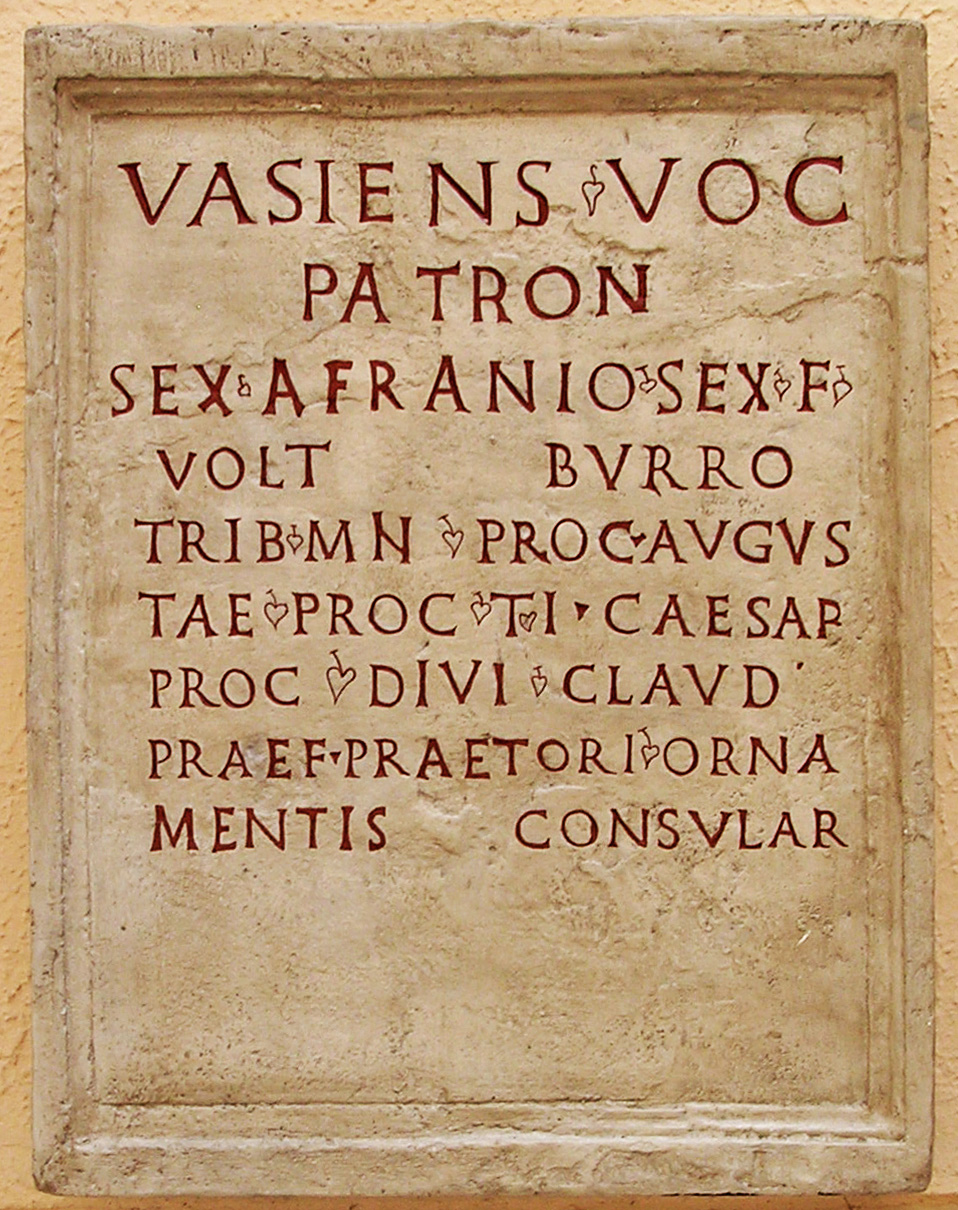 VASIENS ❦ VOC
PATRON
SEX ❦ AFRANIO ❦ SEX ❦ F ❦
VOLT BVRRO
TRIB ❦ MN ❦ PROC · AVGVS
TAE ❦ PROC ❦ TI · CAESAR
PROC ❦ DIVI ❦ CLAVD
PRAEF · PRAETORI ❦ ORNA
MENTIS CONSVLAR